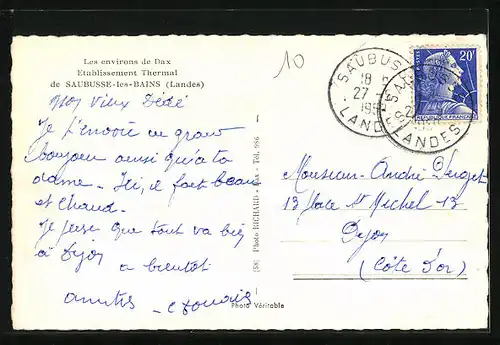 Les environs de Dax
Etablissement Thermal
de SAUBUSSE-les-BAINS (Landes)
10
Mon Vieux Dédé
Je t'envoie un grand
bonjour ainsi qu'à ta
dame. Ici, il fait beau
et chaud.
Je pense que tout va bien
à Dijon
a bientot
amitiés
(58) Photo RICHARD Dax - Tél. 986
Photo Véritable
SAUBUSSE
18 H
27
195
LANDES
SAUBUSSE
LANDES
20F
POSTES
REPUBLIQUE FRANÇAISE
Monsieur André
13 Place St Michel 13
Dijon
(Côte d'Or)